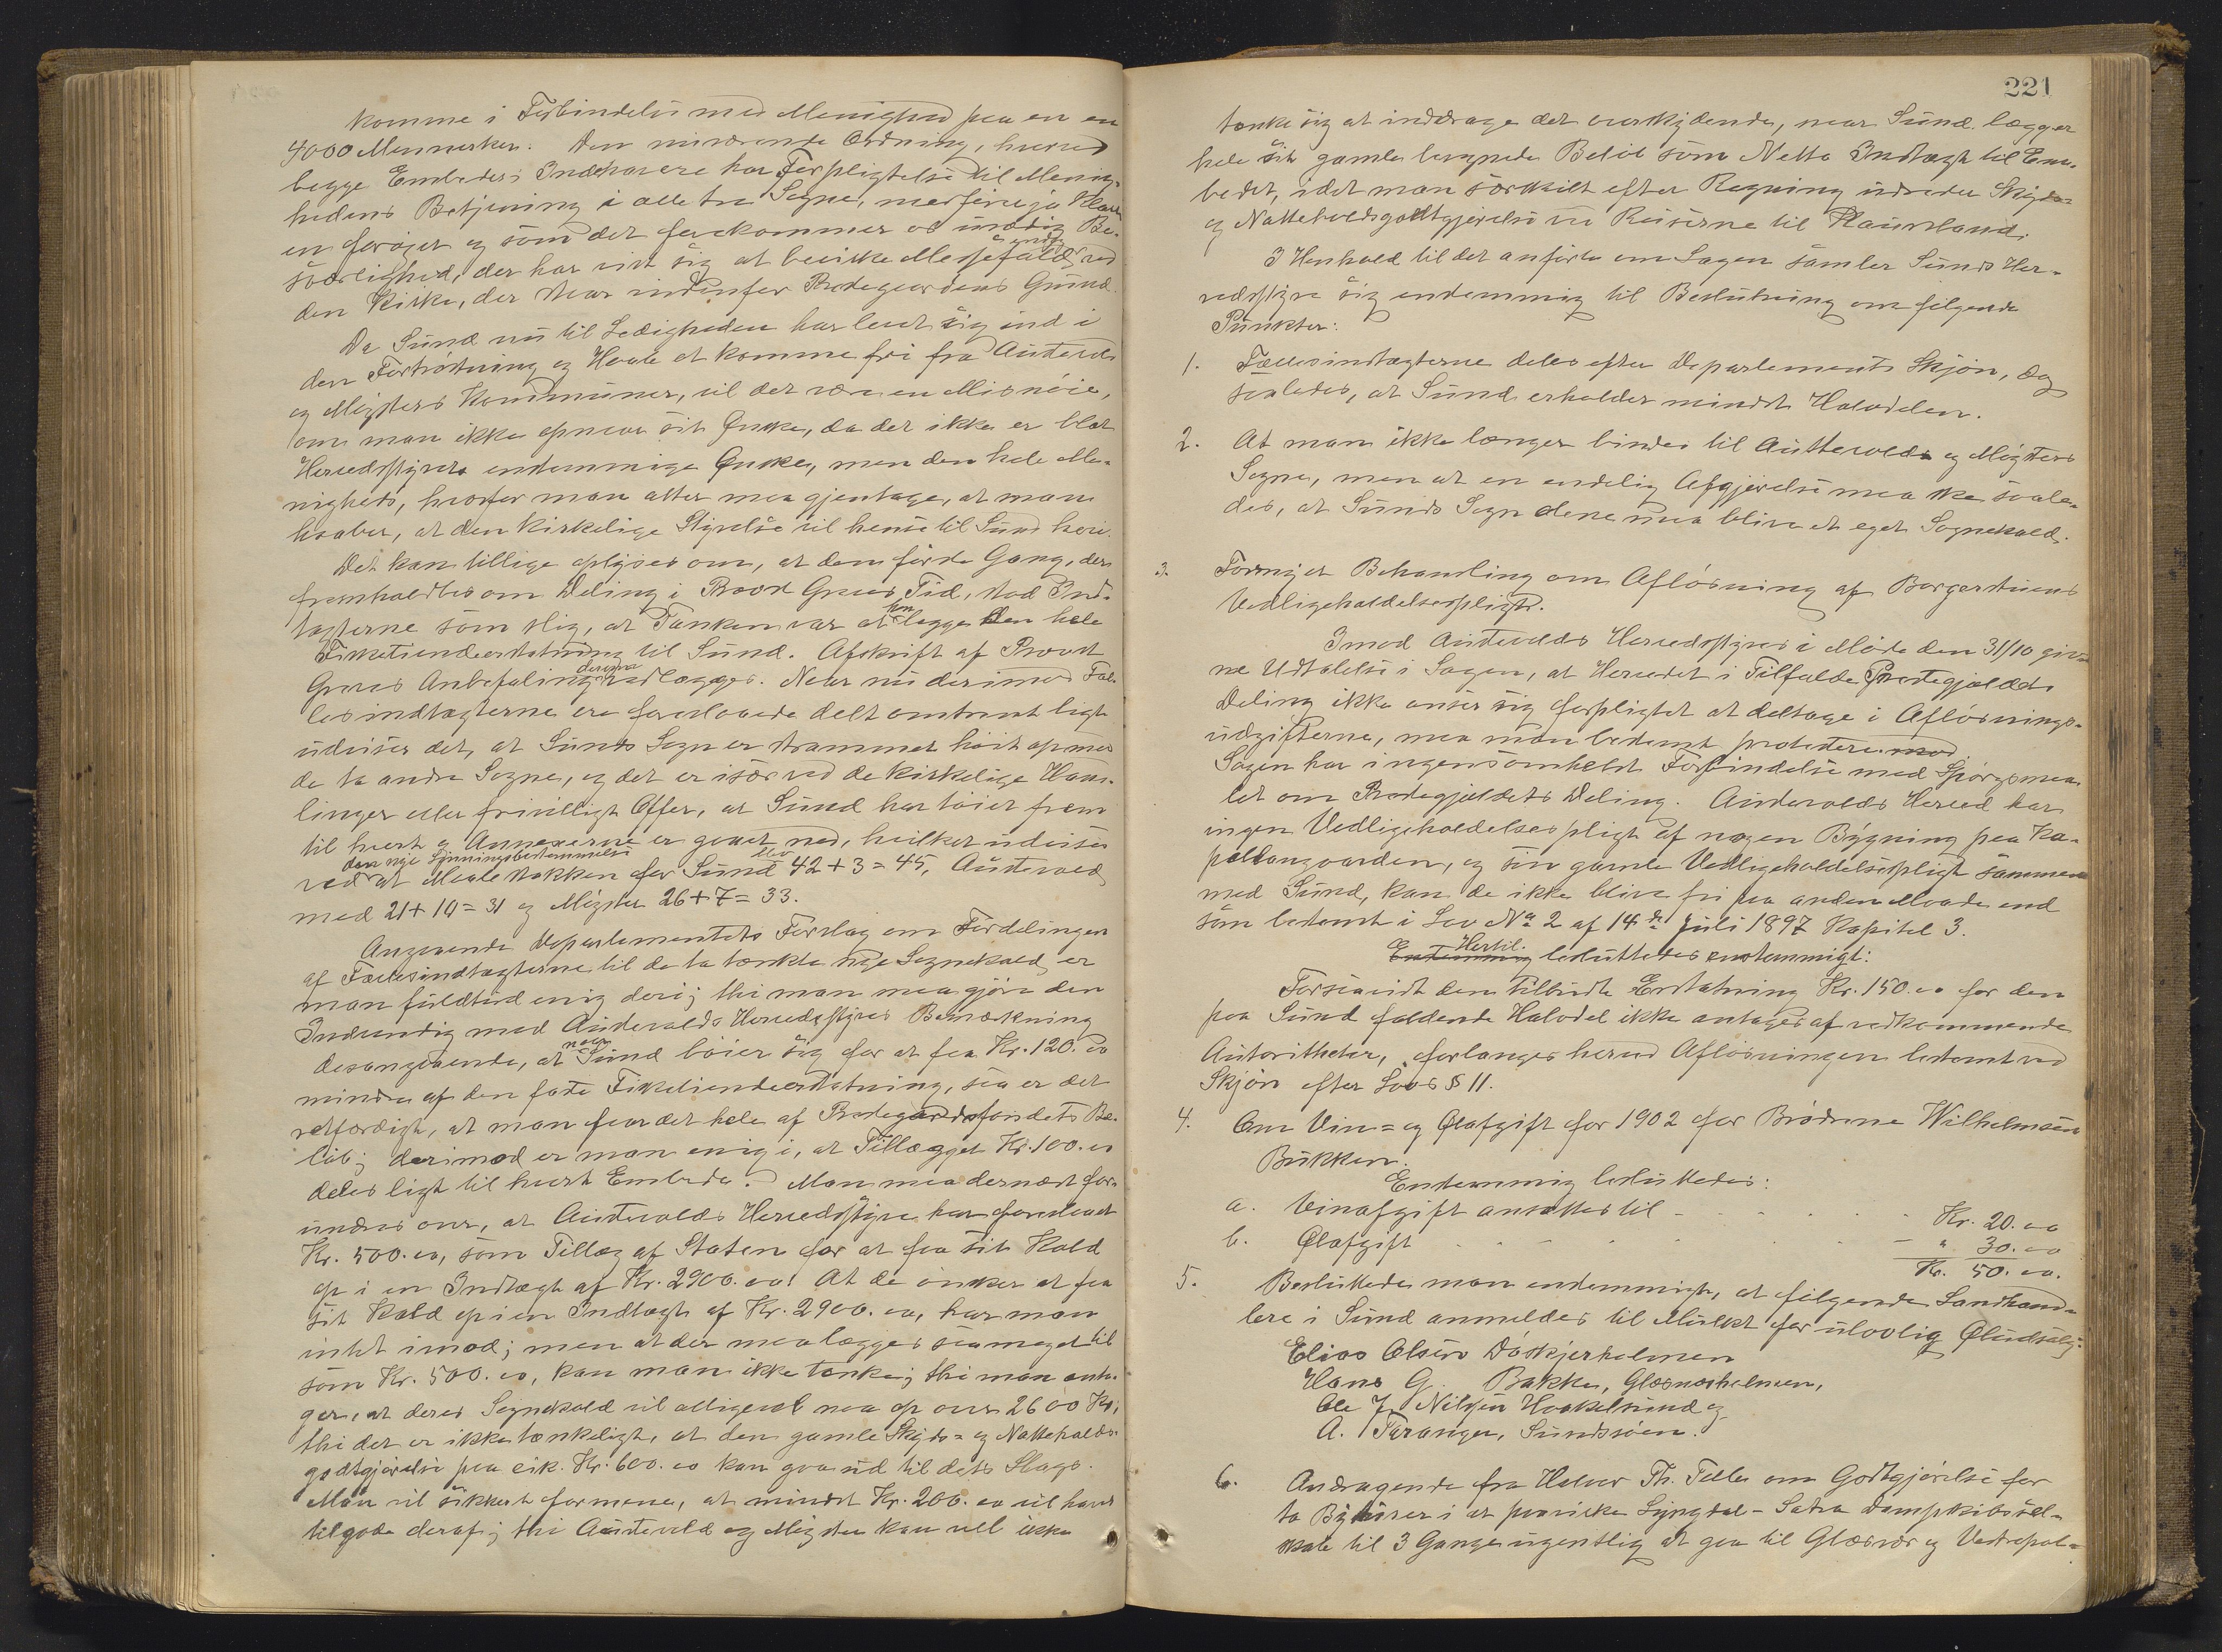 komme i Forbindelse med Menighed paa en en
4000 Mennesker. Den nuværende Ordning, hvorved
begge Embeders Indehavere har Forpligtelse til Menig-
hedens Betjening i alle tre Sogne, medfører jo
en forøget og som det forekommer os unødig Be-
sværlighed, der har vist sig at bevirke Messefald endog ved
den Kirke, der staar indenfor Prestegaardens Grund.
Da Sund nu til Ledigheden har levet sig ind i
den Fortrøstning og Haab at komme fri fra Austevolds
og Møgsters Kommuner, vil det være en Misnøie,
om man ikke opnaar sit Ønske, da det ikke er blot
Herredsstyrets enstemmige Ønske, men den hele Me-
nigheds, hvorfor man atter maa gjentage, at man
haaber, at den kirkelige Styrelse vil hense til Sund heri.
Det kan tillige oplyses om, at den første Gang, der
fremholdtes om Deling i Provst Graves Tid, stod Ind-
tægterne som slig, at Tanken var at kun legge den hele
Fisketiendeerstatning til Sund. Afskrift af Provst
Graves Anbefaling desangaa vedlægges. Naar nu derimod Fæl-
lesindtægterne ere foreslaaede delt omtrent ligt
udvises det, at Sunds Sogn er strammet høit op mod
de to andre Sogne, og det er især ved de kirkelige Hand-
linger eller frivilligt Offer, at Sund har tøiet frem
til hvert og Annexerne er gaaet ned, hvilket udvises
ved den nye Ligningsbestemmelse at Maalestokken for Sund blev 42 + 3 = 45, Austevold
med 21 + 10 = 31 og Møgster 26 + 7 = 33.
Angaaende Departementets Forslag om Fordelingen
af Fællesindtægterne til de to tænkte nye Sognekald er
man fuldtud enig deri; thi man maa gjøre den
Indvending mod Austevolds Herredsstyres Bemærkning
desangaaende, at naar Sund bøier sig for at faa Kr. 120.00
mindre af den faste Fisketiendeerstatning, saa er det
retfærdigt, at man faar det hele af Prestegaardsfondets Be-
løb; derimod er man enig i, at Tillægget Kr. 100.00
deles ligt til hvert Embede. Man maa dernæst for-
undres over, at Austevolds Herredsstyre har foreslaaet
Kr. 500.00, som Tillæg af Staten for at faa sit Kald
op i en Indtægt af Kr. 2900.00! At de ønsker at faa
sit Kald op i en Indtægt af Kr. 2900.00, har man
intet imod; men at der maa lægges saa meget til
som Kr. 500.00, kan man ikke tænke; thi man anta-
ger, at deres Sognekald vil alligevel naa op over 2600 Kr;
thi det er ikke tænkeligt, at den gamle Skyds- og Natteholds-
godtgjørelse paa cirk. Kr. 600.00 kan gaa ud til dets Slags.
Man vil sikkert formene, at mindst Kr. 200.00 vil haves
tilgode deraf; thi Austevold og Møgster kan vel ikke
221
tænke sig at inddrage det overskydende, naar Sund lægger
hele sit gamle beregnede Beløb som Netto Indtægt til Em-
bedet, idet man særskilt efter Regning udreder Skyds-
og Natteholdsgodtgjørelse ved Reiserne til
I Henhold til det anførte om Sagen samler Sunds Her-
redsstyre sig enstemmig til Beslutning om følgende
Punkter:
1. Fællesindtægterne deles efter Departements Skjøn, dog
saaledes, at Sund erholder mindst Halvdelen.
2. At man ikke længer bindes til Austevolds og Møgsters
Sogne, men at en endelig Afgjørelse maa ske saale-
des, at Sunds Sogn alene maa blive et eget Sognekald.
3. Fornyet Behandling om Afløsning af Borgerstuens
Vedligeholdelsespligt.
Imod Austevolds Herredsstyres i Møde den 31/10 giv-
ne Udtalelse i Sagen, at Herredet i Tilfælde Prestegjældets
Deling ikke anser sig forpligtet at deltage i Afløsnings-
udgifterne, maa man bestemt protestere mod
Sagen har ingensomhelst Forbindelse med Spørgsmaa-
let om Prestegjældets Deling. Austevolds Herred har
ingen Vedligeholdelsespligt af nogen Bygning paa Ka-
pellangaarden, og sin gamle Vedligeholdelsespligt sammen
med Sund, kan de ikke blive fri paa anden Maade end
som bestemt i Lov No 2 af 14de Juli 1897 Kapitel 3.
Enstemmig Hertil besluttedes enstemmigt:
Forsaavidt den tilbudte Erstatning Kr. 150.00 for den
paa Sund faldende Halvdel ikke antages af vedkommende
Autoritheter, forlanges herved Afløsningen bestemt ved
Skjøn efter Lovs § 11.
4. Om Vin- og Ølafgift for 1902 for Brødrene Wilhelmsen
Bukken.
Enstemmig besluttedes:
a. Vinafgift ansattes til - - - Kr. 20.00
b. Ølafgift - - - " 30.00
Kr. 50.00.
5. Besluttede man enstemmigt, at følgende Landhand-
lere i Sund anmeldes til Mulkt for ulovlig Øludsalg:
Elias Olsen Døskjerholmen
Hans G. Bakke, Glæsnesholmen,
Ole J. Nilsen Haakelsund og
A. Faranger, Sundsøen.
6. Andragende fra Halvor Th. Telle om Godtgjørelse for
to Byreiser i at paavirke Lyngdal-Satra Dampskibssel-
skab til 3 Gange ugentlig at gaa til Glæsvær og Vestrepol-